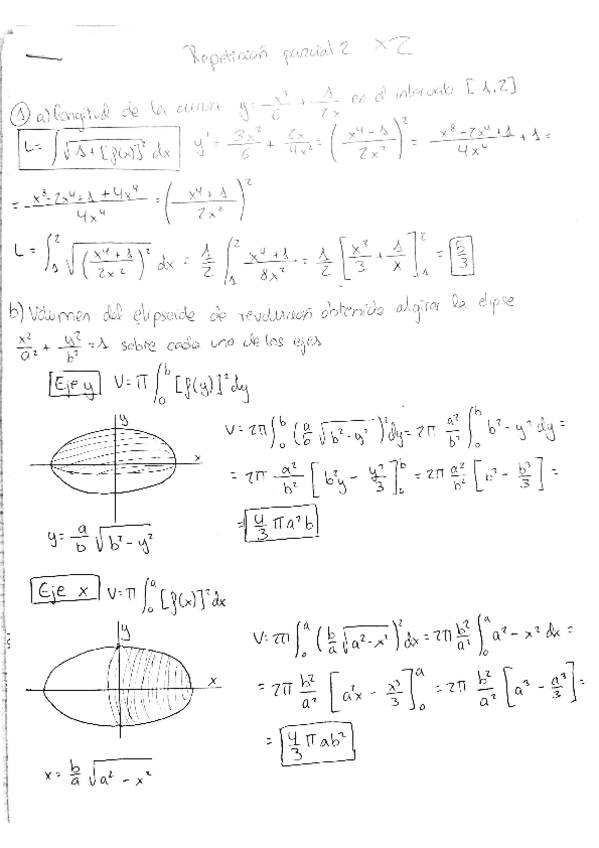 Repetición parcial 2 x2
① a) longitud de la curva y = -x³/6 + 1/2x en el intervalo [1,2]
L = ∫ √(1+[f(x)]² dx y' = 3x²/6 + 2x/4x² = (x⁴-1/2x²)² = x⁸-2x⁴+1/4x⁴ + 1 =
= x⁸-2x⁴+1+4x⁴/4x⁴ = (x⁴+1/2x²)²
L = ∫₁² √(x⁴+1/2x²)² dx = 1/2 ∫₁² x⁴+1/8x² = 1/2 [x³/3 + 1/x]₁² = 5/3
b) Volumen del elipsoide de revolución obtenido al girar la elipse
x²/a² + y²/b² = 1 sobre cada uno de los ejes
Eje y V = π ∫₀ᵇ [f(y)]² dy
y
x
V = 2π ∫₀ᵇ (a/b √b²-y²)² dy = 2π a²/b² ∫₀ᵇ b²-y² dy =
= 2π a²/b² [b²y - y³/3]₀ᵇ = 2π a²/b² [b³ - b³/3] =
= 4/3 πa²b
y = a/b √b²-y²
Eje x V = π ∫₀ᵃ [f(x)]² dx
y
x
V = 2π ∫₀ᵃ (b/a √a²-x²)² dx = 2π b²/a² ∫₀ᵃ a²-x² dx =
= 2π b²/a² [a²x - x³/3]₀ᵃ = 2π b²/a² [a³ - a³/3] =
= 4/3 πab²
x = b/a √a²-x²